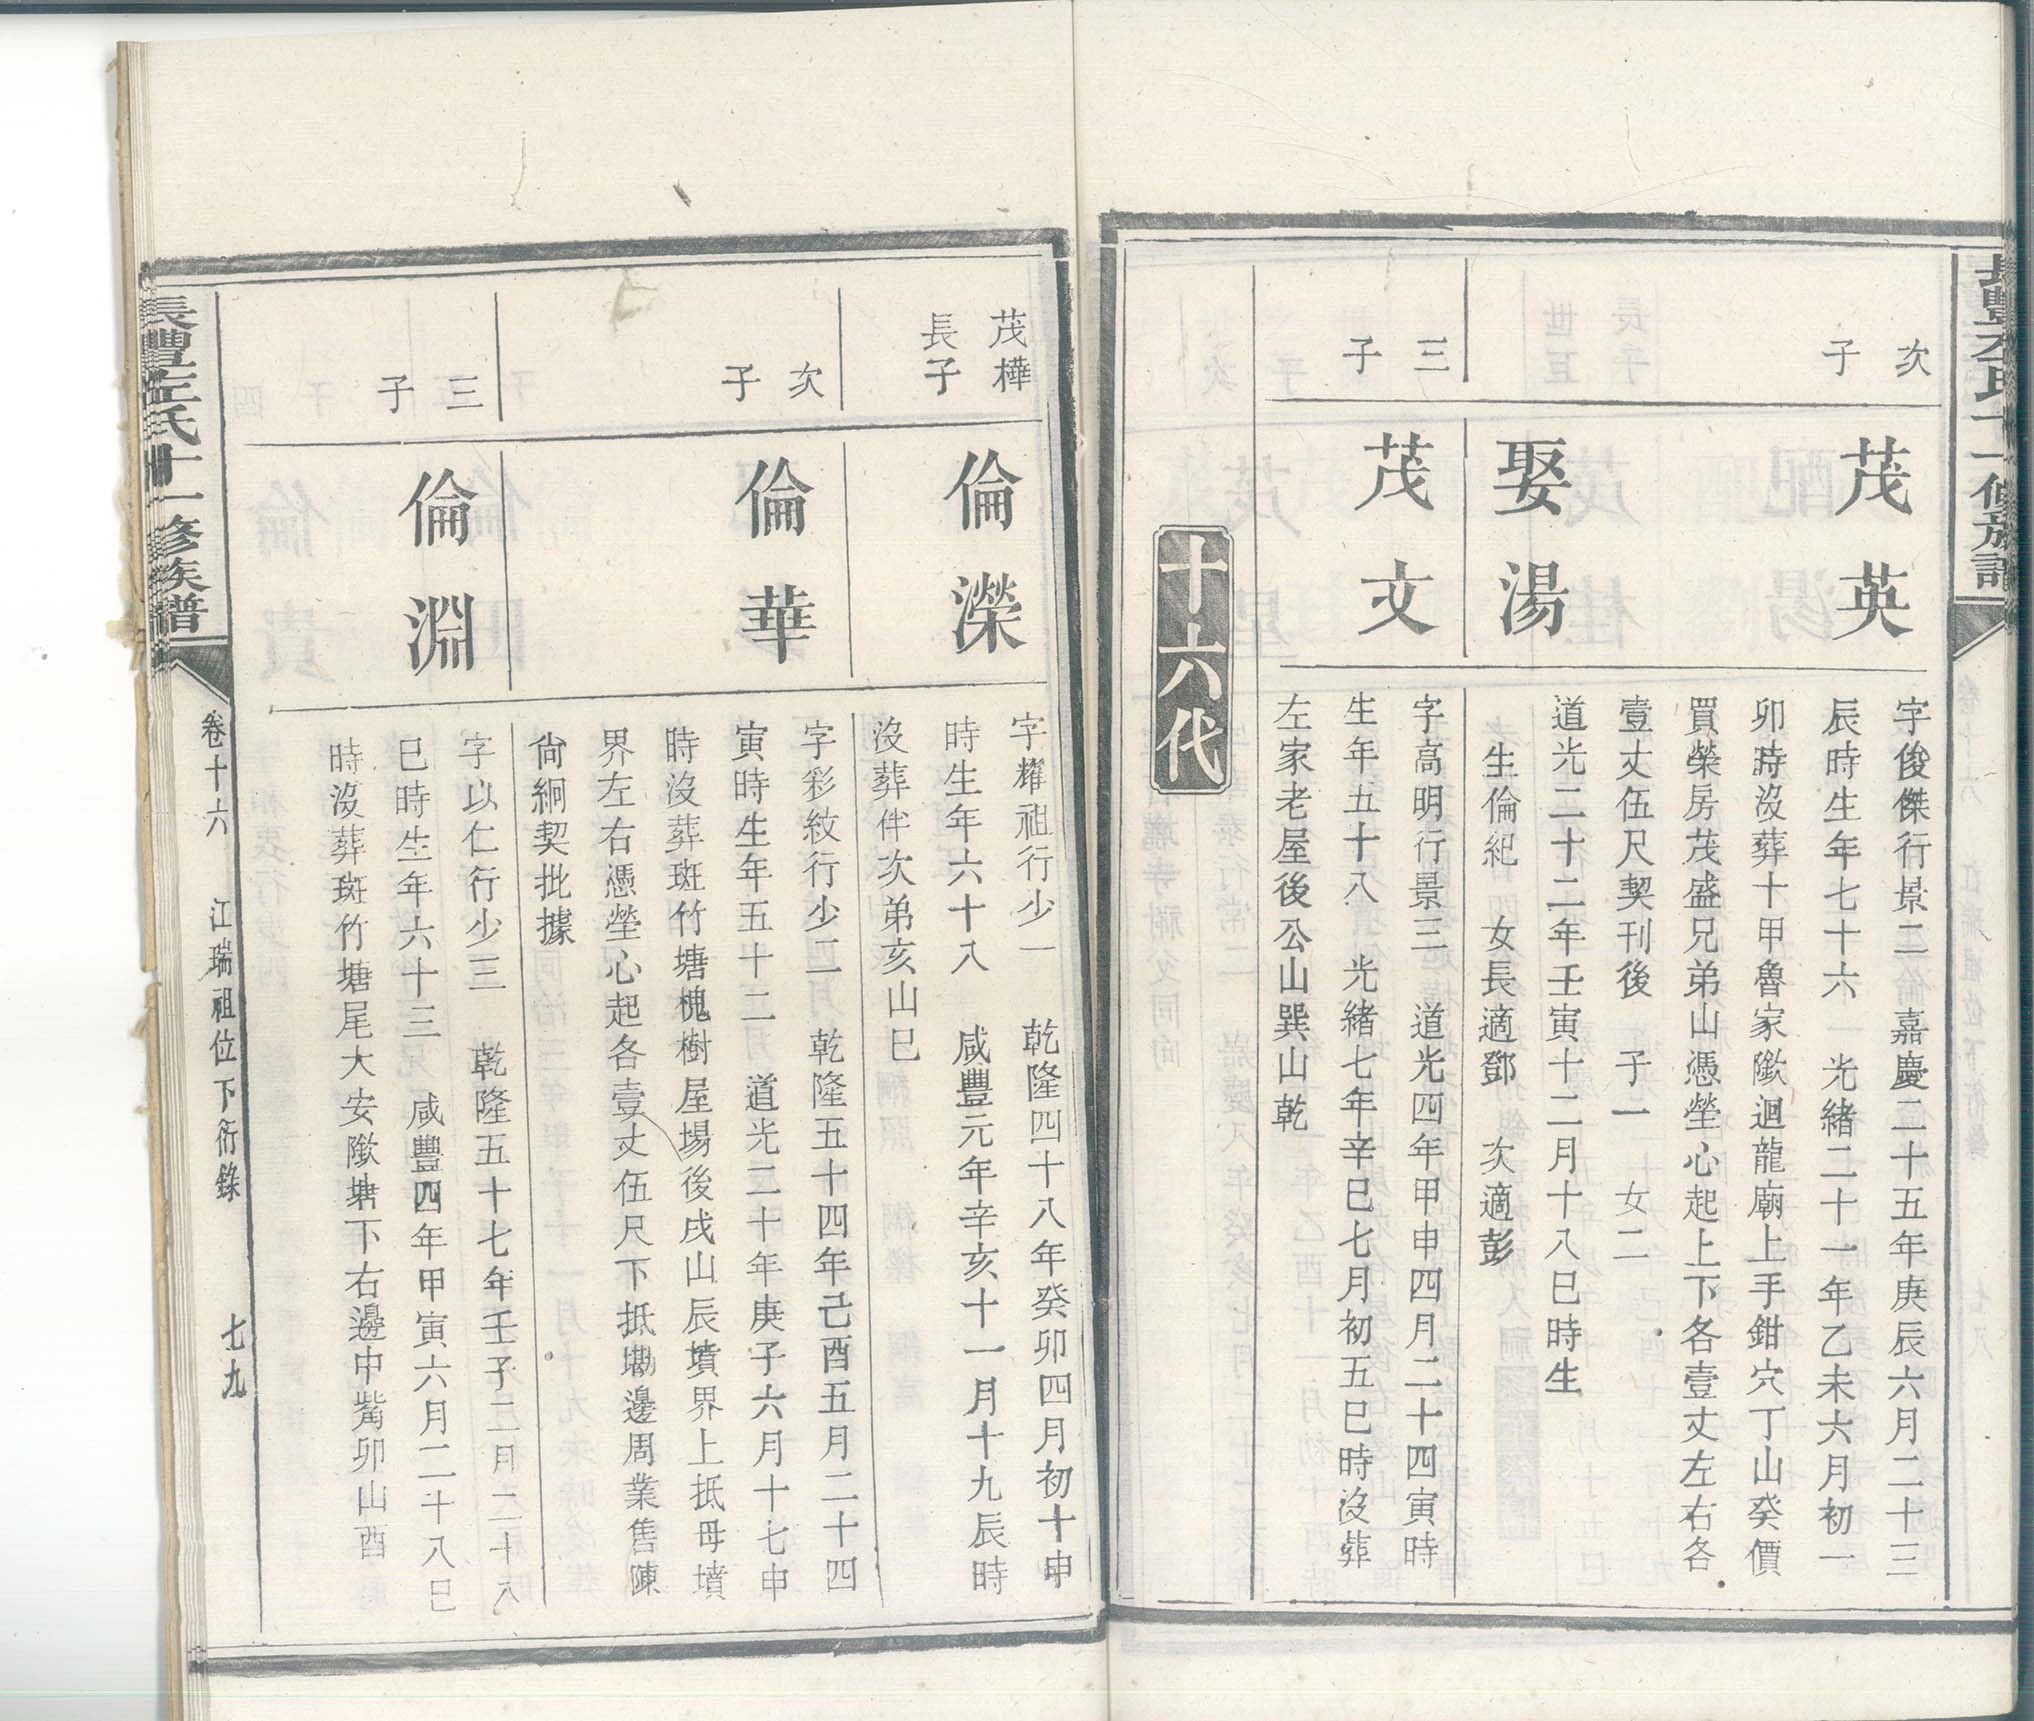 次
子
茂英
字俊傑行景二 嘉慶二十五年庚辰六月二十三
辰時生年七十六 光緒二十一年乙未六月初一
卯時沒葬十甲魯家歘迴龍廟上手鉗穴丁山癸價
買榮房茂盛兄弟山憑塋心起上下各壹丈左右各
壹丈伍尺契刊後 子一 女二
娶湯
道光二十二年壬寅十二月十八巳時生
生倫紀 女長適鄧 次適彭
三
子
茂文
字高明行景三 道光四年甲申四月二十四寅時
生年五十八 光緒七年辛巳七月初五巳時沒葬
左家老屋後公山巽山乾
十六代
茂樺
長子
倫濚
字耀祖行少一 乾隆四十八年癸卯四月初十申
時生年六十八 咸豐元年辛亥十一月十九辰時
沒葬伴次弟亥山巳
次
子
倫華
字彩紋行少二 乾隆五十四年己酉五月二十四
寅時生年五十二 道光二十年庚子六月十七申
時沒葬斑竹塘槐樹屋場後戌山辰墳界上抵母墳
界左右憑塋心起各壹丈伍尺下抵墈邊周業售陳
尙絅契批據
三
子
倫淵
字以仁行少三 乾隆五十七年壬子二月二十八
巳時生年六十三 咸豐四年甲寅六月二十八巳
時沒葬斑竹塘尾大安歘塘下右邊中嘴卯山酉
長豐左氏十一修族譜
卷十六 江瑞祖位下衍錄 七九